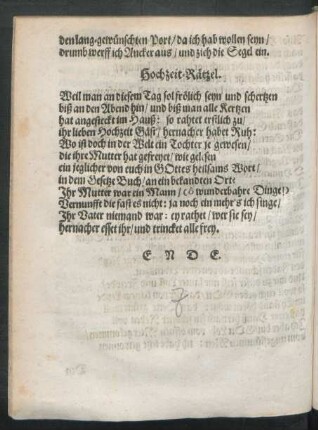 den lang-gewünschten Port / da ich hab wollen seyn /
drumb werff ich Ancker aus / und zich die Segel ein.
Hochzeit-Rätzel.
Weil man an diesem Tag sol frölich seyn und schertzen
biß an den Abend hin / und biß man alle Kertzen
hat angesteckt im Hauß: so rahtet erstlich zu /
ihr lieben Hochzeit Gäst / hernacher habet Ruh:
Wo ist doch in der Welt ein Tochter je gewesen /
die ihre Mutter hat gefreyet / wie gelesen
ein jeglicher von euch in GOttes heilsams Wort /
in dem Gesetze Buch / an ein bekandten Ort:
Ihr Mutter war ein Mann / (ô wunderbahre Dinge!)
Vernunfft die faß es nicht: ja noch ein mehr's ich singe /
Ihr Vater niemand war: ey rathet / wer sie sey /
hernacher esset ihr / und trincket alle frey.
E N D E.